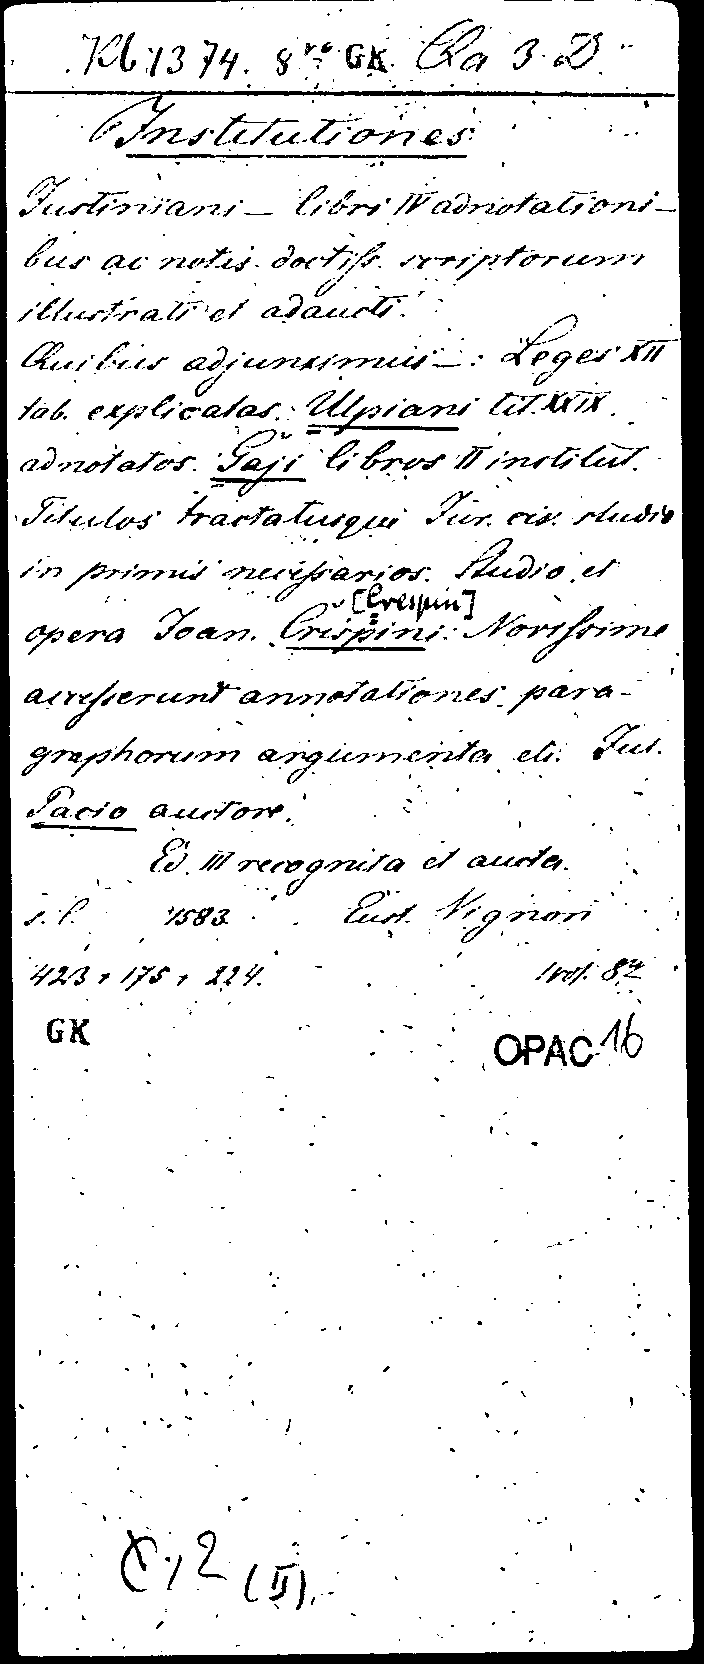 Kb 1374. 8vo GK Qa 3. D.
Institutiones
Justiniani — libri IV adnotationi-
bus ac notis doctiss. scriptorum
illustrati et adaucti.
Quibus adjunximus —: Leges XII
tab. explicatas. Ulpiani tit. XXIX.
adnotatos. Gaji libros II institut.
Titulos tractatusque Jur. civ. studio
in primis necessarios. Studio et
[Crespin]
opera Joan. Crispini. Novissime
accesserunt annotationes, para-
graphorum argumenta etc. Jul.
Pacio auctore.
Ed. III recognita et aucta.
s. l. 1583 Eust. Vignon
423, 175, 224. 1 vol. 8°
GK
OPAC 16
, 2 (II).